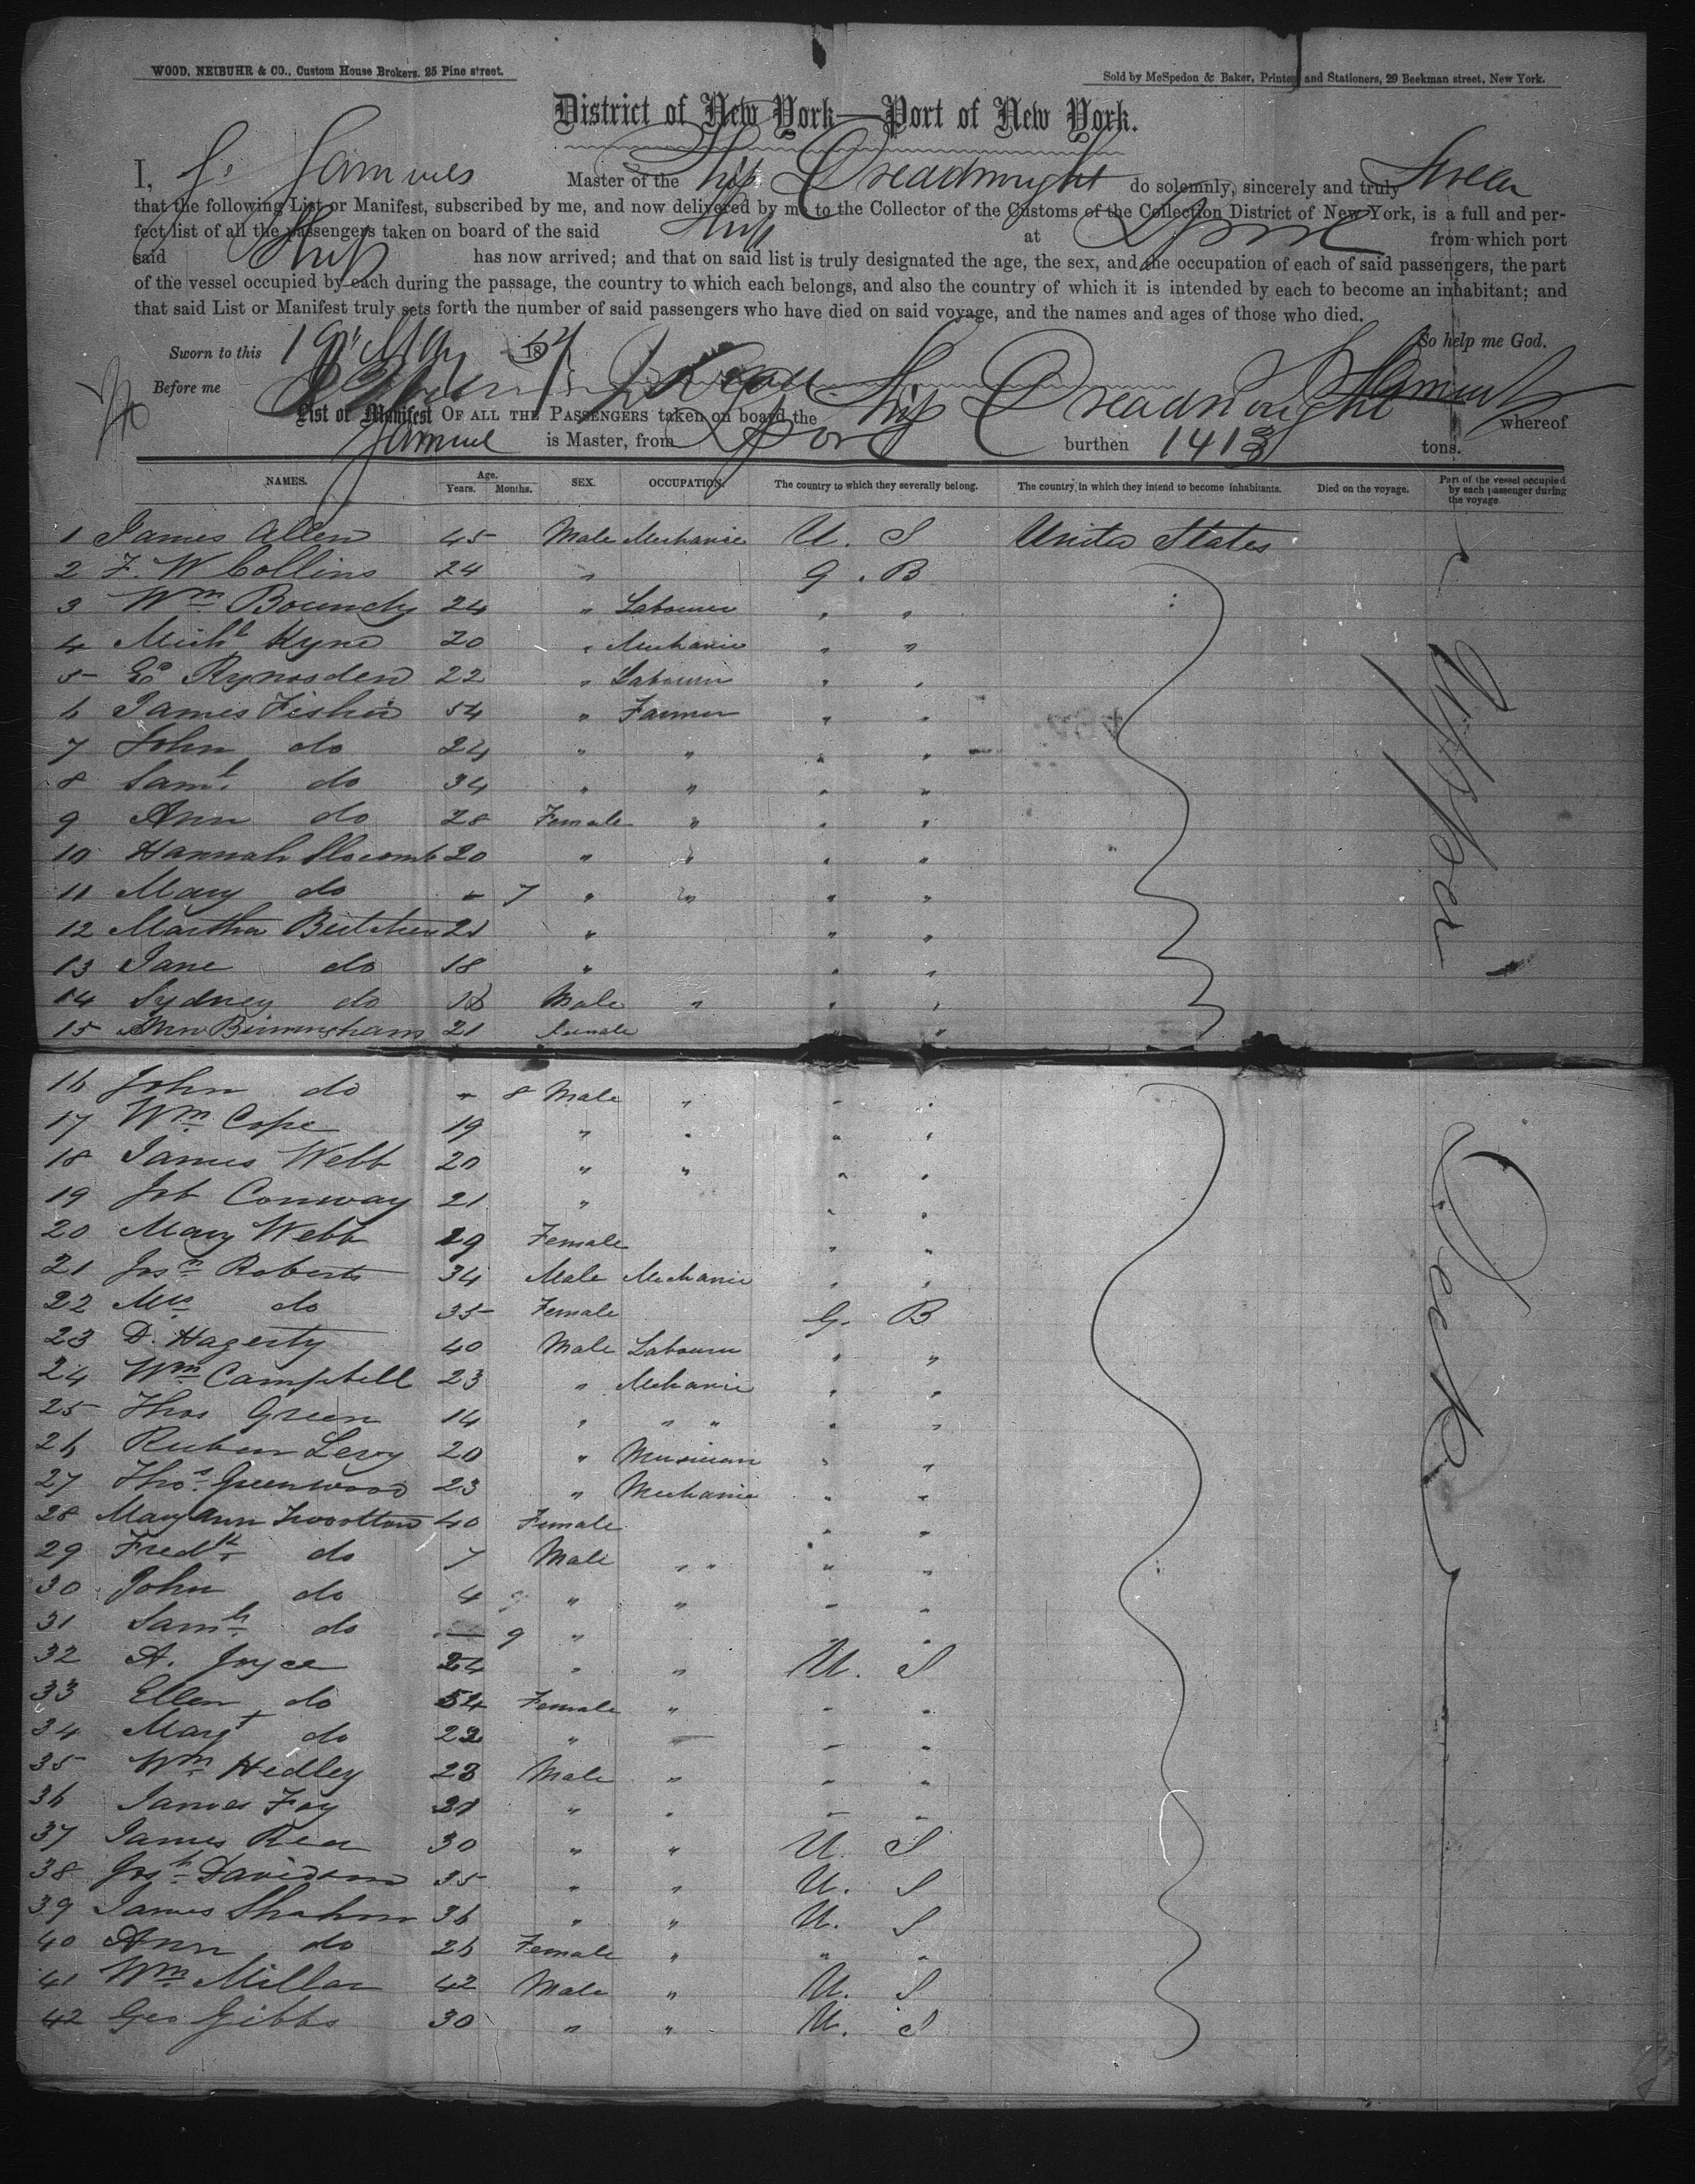 WOOD, NEIBUHR & CO., Custom House Brokers. 25 Pine street.
Sold by McSpedon & Baker, Printers and Stationers, 29 Beekman street, New York.
District of New York—Port of New York.
I, S. Samuels Master of the Ship Dreadnought do solemnly, sincerely and truly Swear
that the following List or Manifest, subscribed by me, and now delivered by me to the Collector of the Customs of the Collection District of New York, is a full and per-
fect list of all the passengers taken on board of the said Ship at Lpool from which port
said Ship has now arrived; and that on said list is truly designated the age, the sex, and the occupation of each of said passengers, the part
of the vessel occupied by each during the passage, the country to which each belongs, and also the country of which it is intended by each to become an inhabitant; and
that said List or Manifest truly sets forth the number of said passengers who have died on said voyage, and the names and ages of those who died.
So help me God.
Sworn to this 19 May 1854
Before me S Samuels
List or Manifest OF ALL THE PASSENGERS taken on board the Ship Dreadnought whereof
Samuel is Master, from Lpool burthen 1413 tons.
NAMES. Age. Years. Months. SEX. OCCUPATION. The country to which they severally belong. The country in which they intend to become inhabitants. Died on the voyage. Part of the vessel occupied by each passenger during the voyage
1 James Allen 45 Male Mechanic U. S United States
2 F. W Collins 24 " G. B
3 Wm Bounchy 24 " Labourer " "
4 Michl Kyne 20 " Mechanic " "
5 Eo Rynosden 22 " Labourer " "
6 James Fisher 54 " Farmer " "
7 John do 24 " " " "
8 Saml do 34 " " " "
9 Ann do 28 Female " " "
10 Hannah Slocomb 20 " " " "
11 Mary do - 7 " " " "
12 Martha 21 " " "
13 Jane do 18 " " "
14 Sydney do Male " " "
15 Ann Birmingham 21 Female " "
Upper
16 John do - 8 Male " " "
17 Wm Cope 19 " " " "
18 James Webb 20 " " " "
19 Conway 21 " " "
20 Mary Webb 29 Female " "
21 Josh Roberts 34 Male Mechanic " "
22 Mrs do 35 Female G. B
23 D. Hagerty 40 Male Labourer " "
24 Wm Campbell 23 " Mechanic " "
25 Thos Green 14 " " " " "
26 Ruben Levy 20 " Musician " "
27 Thos Greenwood 23 " Mechanic " "
28 Mary Ann 40 Female " "
29 Fredk do 7 Male " " " "
30 John do 4 " " " "
31 Saml do — 9 " " "
32 A. Joyce 24 " " U. S
33 Ellen do 54 Female " " "
34 Margt do 22 " — " "
35 Wm Hedley 23 Male " " "
36 James Foy 21 " " " "
37 James Rea 30 " " U. S
38 Josh Davidson 35 " " U. S
39 James Shahon 36 " " U. S
40 Ann do 26 Female " " "
41 Wm Millar 42 Male " U. S
42 Geo Gibbs 30 " " U. S
Deck